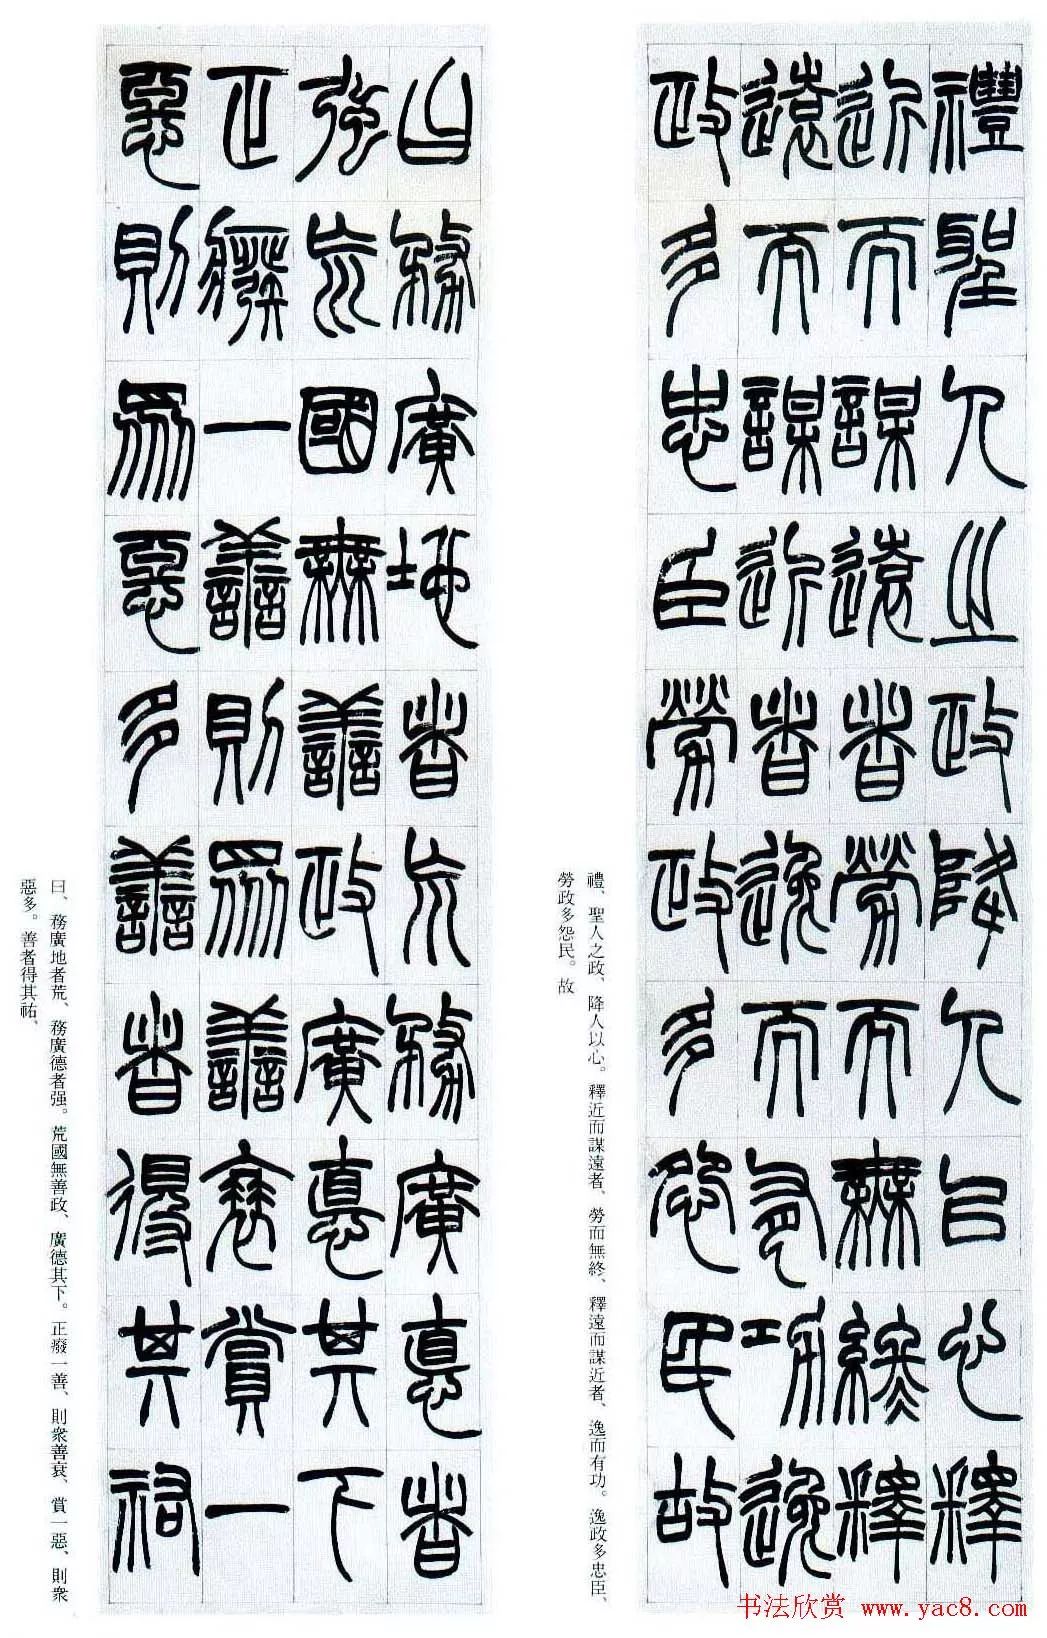 禮聖人之政降人以心釋
近而謀遠者勞而無終釋
遠而謀近者逸而有功逸
政多忠臣勞政多怨民故
禮、聖人之政、降人以心。釋近而謀遠者、勞而無終、釋遠而謀近者、逸而有功。逸政多忠臣、
勞政多怨民。故
曰務廣地者荒務廣德者
强荒國無善政廣德其下
正癈一善則衆善衰賞一
惡則衆惡多善者得其祐
曰、務廣地者荒、務廣德者强。荒國無善政、廣德其下。正癈一善、則衆善衰、賞一惡、則衆
惡多。善者得其祐、
书法欣赏 www.yac8.com